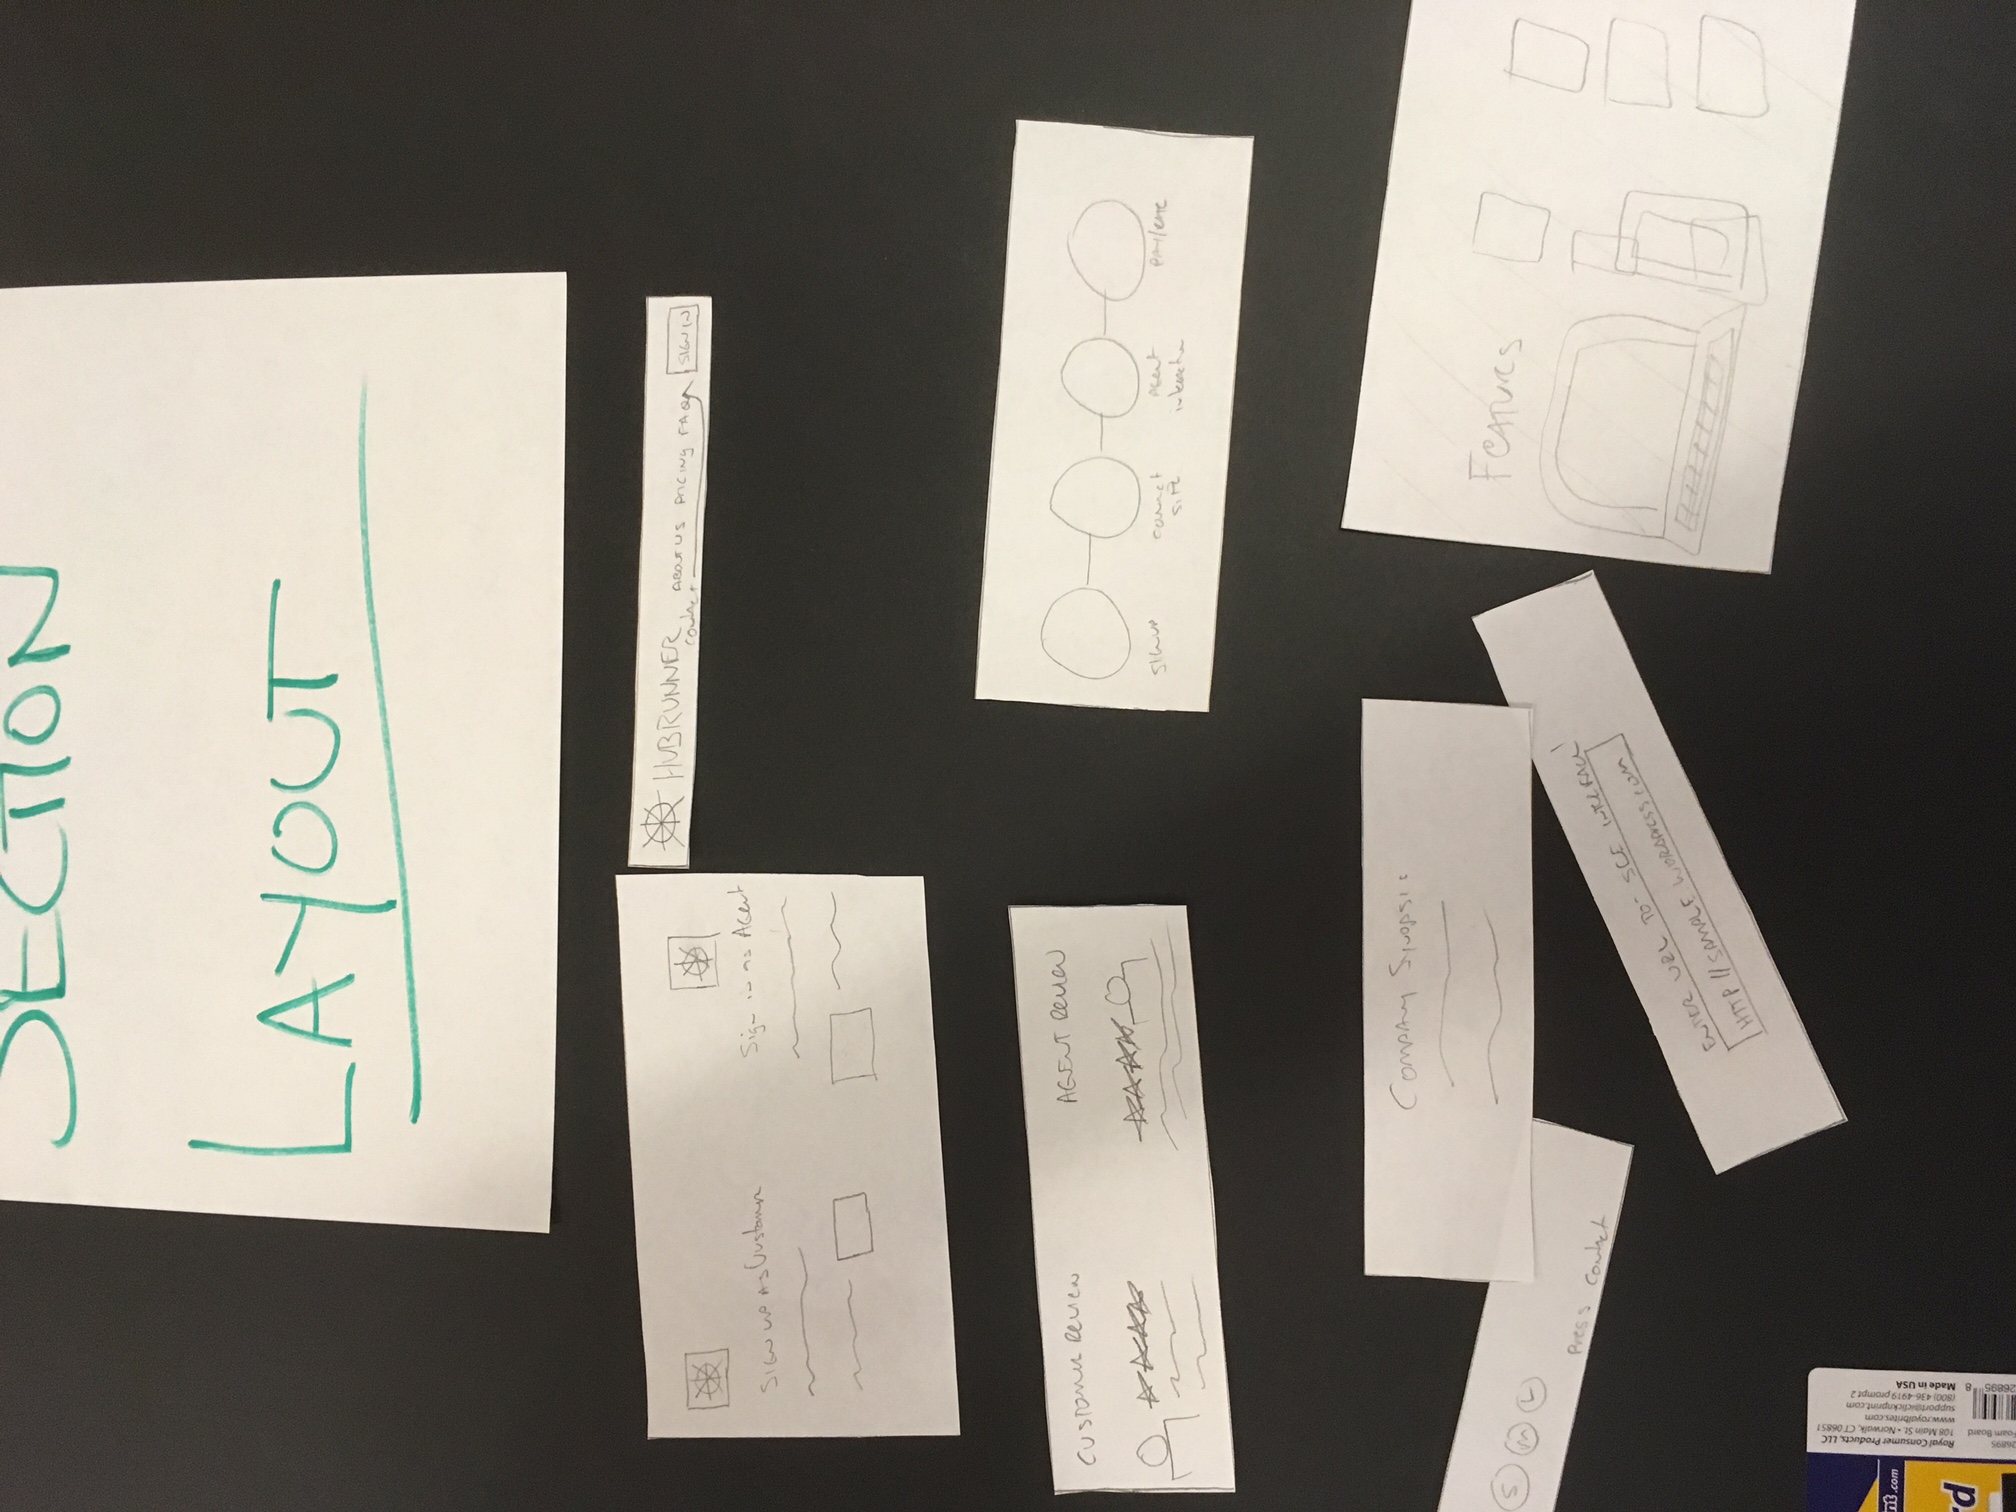 SECTION
LAYOUT
HUBRUNNER
ABOUT US PRICING FAQ
SIGN IN
Contact
SIGN UP AS Customer
Sign in as Agent
CUSTOMER REVIEW
AGENT REVIEW
SIGN UP
connect
site
Agent
interaction
PAY/RATE
COMPANY SYNOPSIS
S M L
Press Contact
ENTER URL TO SEE INTERFACE!
HTTP//SAMPLE.WORDPRESS.COM
FEATURES
nt.com
rd
Royal Consumer Products, LLC
108 Main St. • Norwalk, CT 06851
www.royalbrites.com
support@iclicknprint.com
(800) 436-4919 prompt 2
Made in USA
26895
Foam Board
26895 8